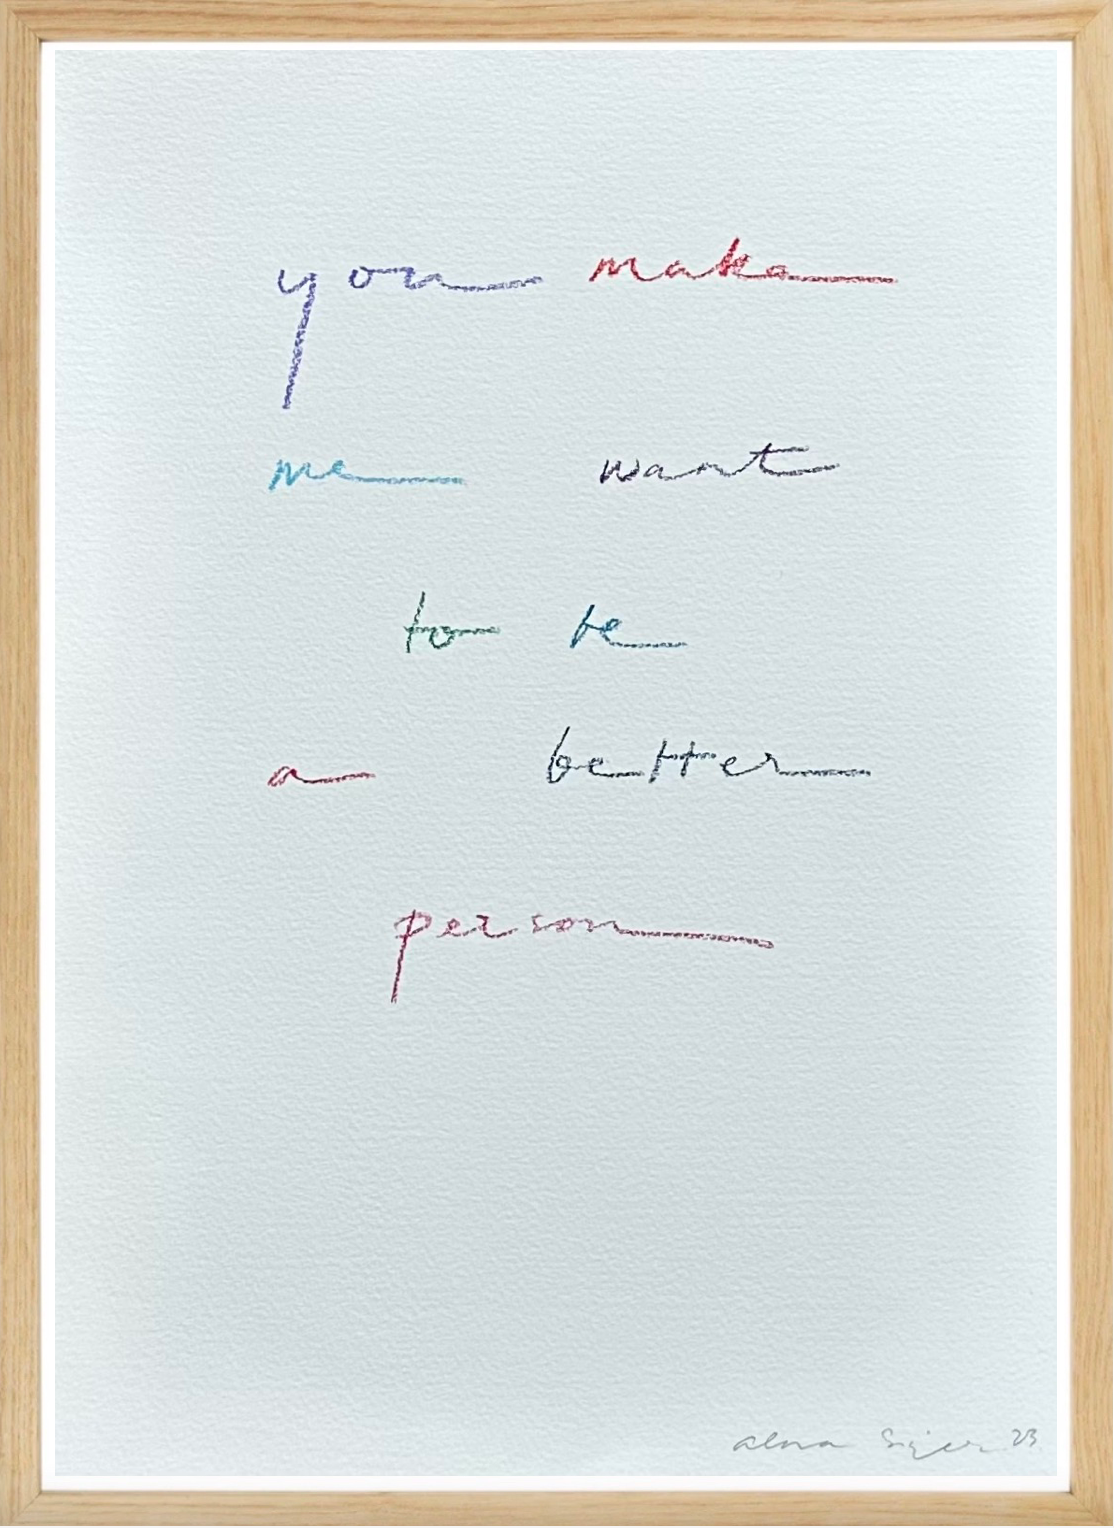 you make
me want
to be
a better
person
23